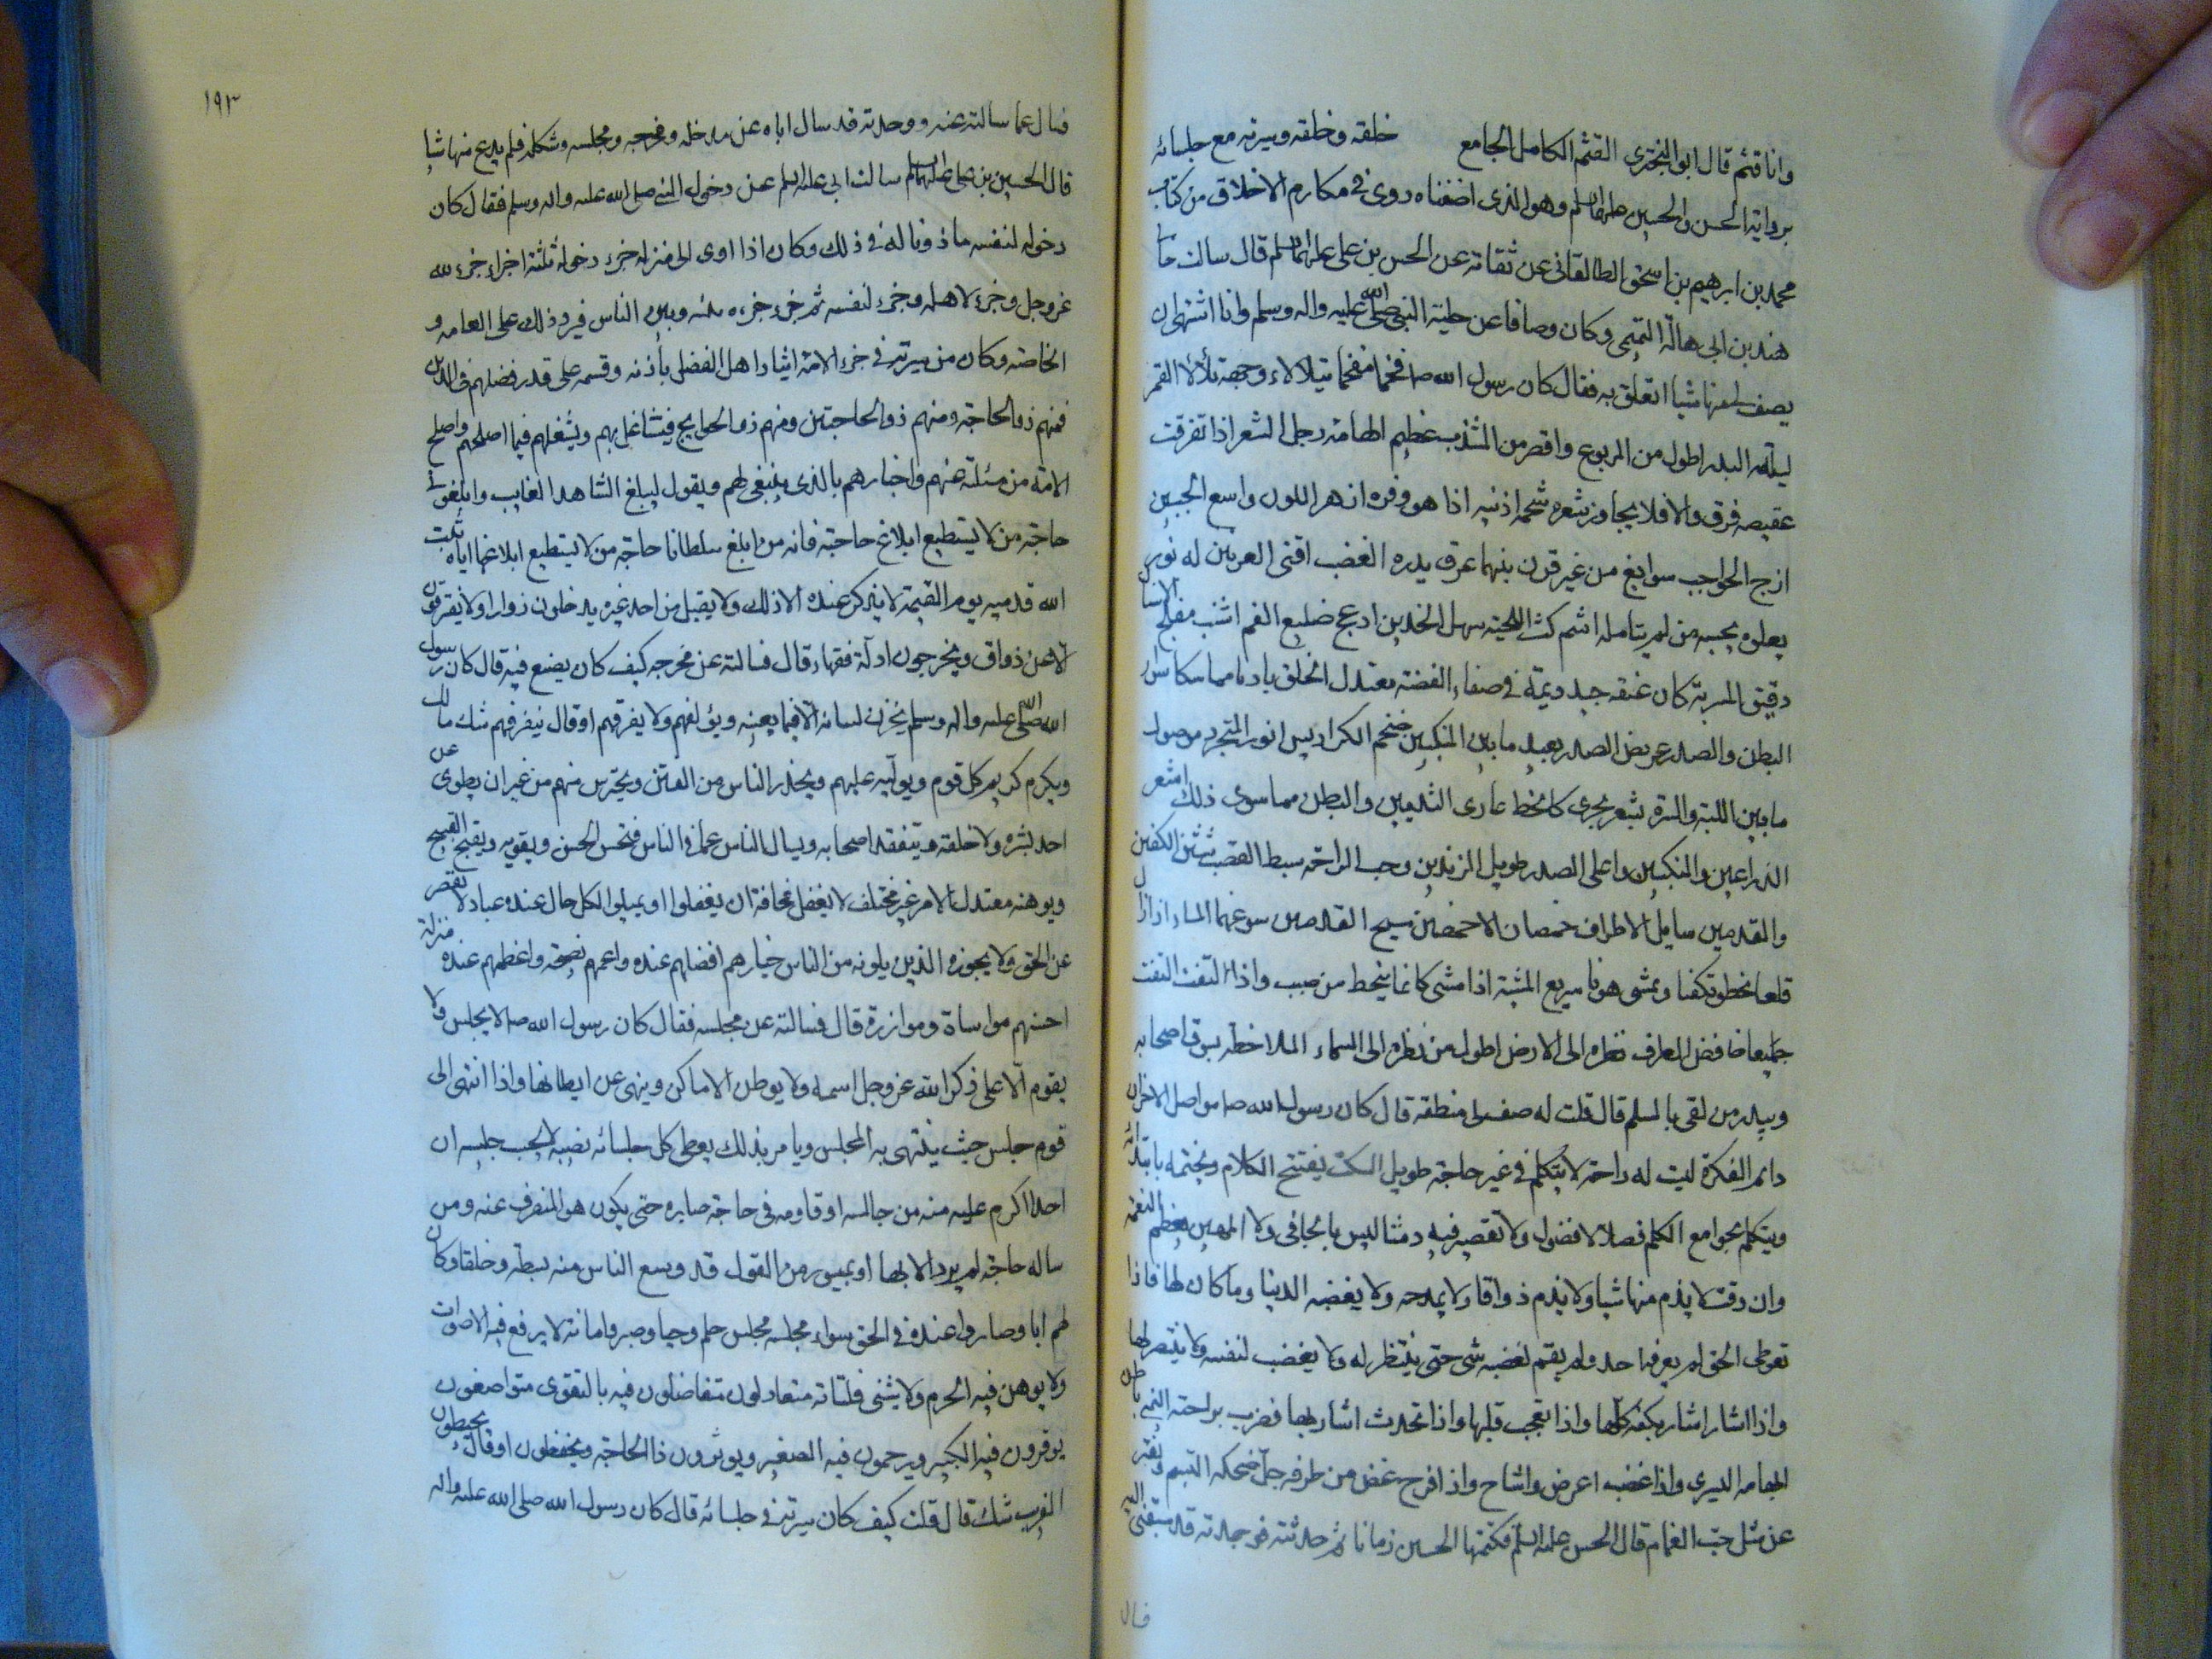 وانا قثم قال ابو البختري القثم الكامل الجامع خلقه وخلقه وسيرته مع جلسائه
برواية الحسن والحسين عليهما السلم وهو الذى اضفناه روى في مكارم الاخلاق من كتاب
محمد بن ابرهيم بن اسحق الطالقانى عن ثقاته عن الحسن بن على عليهما السلم قال سالت خا
هند بن ابى هالة التميمى وكان وصافا عن حلية النبى صلى الله عليه واله وسلم وانا اشتهى ان
يصف لى منها شيا اتعلق به فقال كان رسول الله ص فخما مفخما يتلالاء وجهه تلألأ القمر
ليلة البدر اطول من المربوع واقصر من المشذب عظيم الهامة رجل الشعر اذا تفرقت
عقيصه فرق والا فلا يجاوز شعره شحمة اذنيه اذا هو وفره ازهر اللون واسع الجبين
ازج الحواجب سوابغ من غير قرن بينهما عرق يدره الغضب اقنى العرنين له نور
يعلوه يحسبه من لم يتامله اشم كث اللحية سهل الخدين ادعج ضليع الفم اشنب مفلج الاسنا
دقيق المسربة كان عنقه جيد دمية في صفاء الفضة معتدل الخلق بادنا متماسكا سوا
البطن والصدر عريض الصدر بعيد ما بين المنكبين ضخم الكراديس انور المتجرد موصول
ما بين اللبة والسرة بشعر يجرى كالخط عارى الثديين والبطن مما سوى ذلك اشعر
الذراعين والمنكبين واعلى الصدر طويل الزندين رحب الراحة سبط القصب شثن الكفين
والقدمين سايل الاطراف خمصان الاخمصين مسيح القدمين ينبو عنهما الماء اذا زال
قلعا يخطو تكفئا ويمشى هونا سريع المشية اذا مشى كانما ينحط من صبب واذا التفت التفت
جميعا خافض الطرف نظره الى الارض اطول من نظره الى السماء الملاحظة يسوق اصحابه
ويبدر من لقى بالسلم قال قلت له صف لى منطقه قال كان رسول الله ص متواصل الاحزان
دائم الفكرة ليست له راحة لا يتكلم في غير حاجة طويل السكت يفتتح الكلام ويختمه باشداقه
ويتكلم بجوامع الكلم فصلا لا فضول ولا تقصير فيه دمثا ليس بالجافى ولا المهين يعظم النعمة
وان دقت لا يذم منها شيا ولا يذم ذواقا ولا يمدحه ولا يغضبه الدنيا وما كان لها فاذا
تعوطى الحق لم يعرفه احد ولم يقم لغضبه شى حتى ينتظر له ولا يغضب لنفسه ولا ينتصر لها
واذا اشار اشار بكفه كلها واذا تعجب قلبها واذا تحدث اشار بها فضرب براحته اليمنى باطن
ابهامه اليسرى واذا غضب اعرض واشاح واذا فرح غض من طرفه جل ضحكه التبسم ويفتر
عن مثل حب الغمام قال الحسن عليه السلم فكتمتها الحسين زمانا ثم حدثته فوجدته قد سبقنى اليه
فسال
١٩٣
فسال عما سالته عنه ووجدته قد سال اباه عن مدخله ومخرجه ومجلسه وشكله فلم يدع منها شيا
قال الحسين بن على عليهما السلم سالت ابى عليه السلم عن دخول النبى صلى الله عليه واله وسلم فقال كان
دخوله لنفسه ماذونا له في ذلك وكان اذا اوى الى منزله جزء دخوله ثلثة اجزاء جزء لله
عز وجل وجزء لاهله وجزء لنفسه ثم جزء جزءه بينه وبين الناس فيرد ذلك على العامه و
الخاصة وكان من سيرته في جزء الامة ايثار اهل الفضل باذنه وقسمه على قدر فضلهم في الدين
فمنهم ذو الحاجة ومنهم ذو الحاجتين ومنهم ذو الحوايج فيتشاغل بهم ويشغلهم فيما اصلحهم واصلح
الامة من مسئلته عنهم واخبارهم بالذى ينبغى لهم ويقول ليبلغ الشاهد الغايب وابلغونى
حاجة من لا يستطيع ابلاغ حاجته فانه من ابلغ سلطانا حاجة من لا يستطيع ابلاغها اياه ثبت
الله قدميه يوم القيمة لا يذكر عنده الا ذلك ولا يقبل من احد غيره يدخلون زوارا ولا يفترقون
الا عن ذواق ويخرجون ادلة فقهاء قال فسالته عن مخرجه كيف كان يصنع فيه قال كان رسول
الله صلى الله عليه واله وسلم يخزن لسانه الا فيما يعنيه ويؤلفهم ولا يفرقهم او قال ينفرفهم شك مالك
ويكرم كريم كل قوم ويوليه عليهم ويحذر الناس من الفتن ويحترس منهم من غير ان يطوى عن
احد بشره ولا خلقه ويتفقد اصحابه ويسال الناس عما في الناس فيحسن الحسن ويقويه ويقبح القبيح
ويوهنه معتدل الامر غير مختلف لا يغفل مخافة ان يغفلوا او يميلوا لكل حال عنده عباد لا يقصر
عن الحق ولا يجوزه الذين يلونه من الناس خيارهم افضلهم عنده واعمهم نصيحة واعظمهم عنده منزلة
احسنهم مواساة وموازرة قال فسالته عن مجلسه فقال كان رسول الله ص لا يجلس ولا
يقوم الا على ذكر الله عز وجل اسمه ولا يوطن الاماكن وينهى عن ايطانها واذا انتهى الى
قوم جلس حيث ينتهى به المجلس ويامر بذلك يعطى كل جلسائه نصيبه لا يحسب جليسه ان
احدا اكرم عليه منه من جالسه او قاومه في حاجة صابره حتى يكون هو المنصرف عنه ومن
ساله حاجة لم يرد الا بها او بميسور من القول قد وسع الناس منه بسطه وخلقا وكان
لهم ابا وصاروا عنده في الحق سواء مجلسه مجلس حلم وحيا وصبر وامانة لا يرفع فيه الاصوات
ولا يوهن فيه الحرم ولا يثنى فلتاته متعادلون متفاضلون فيه بالتقوى متواضعون
يوقرون فيه الكبير ويرحمون فيه الصغير ويوثرون ذا الحاجة ويحفظون او قال يحيطون
الغريب شك قال قلت كيف كان سيرته في جلسائه قال كان رسول الله صلى الله عليه واله